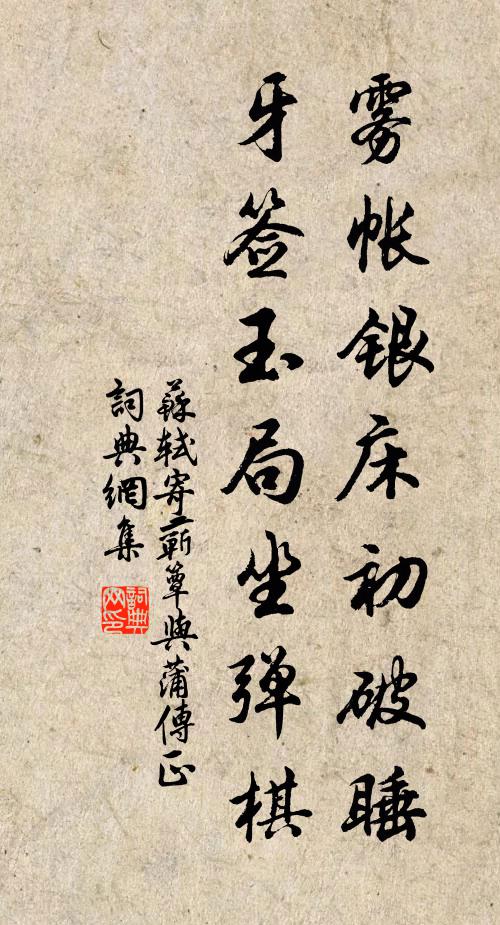 雾帐银床初破睡
牙签玉局坐弹棋
蘇轼寄蕲簟與蒲傳正
詞典網集
詞典网印